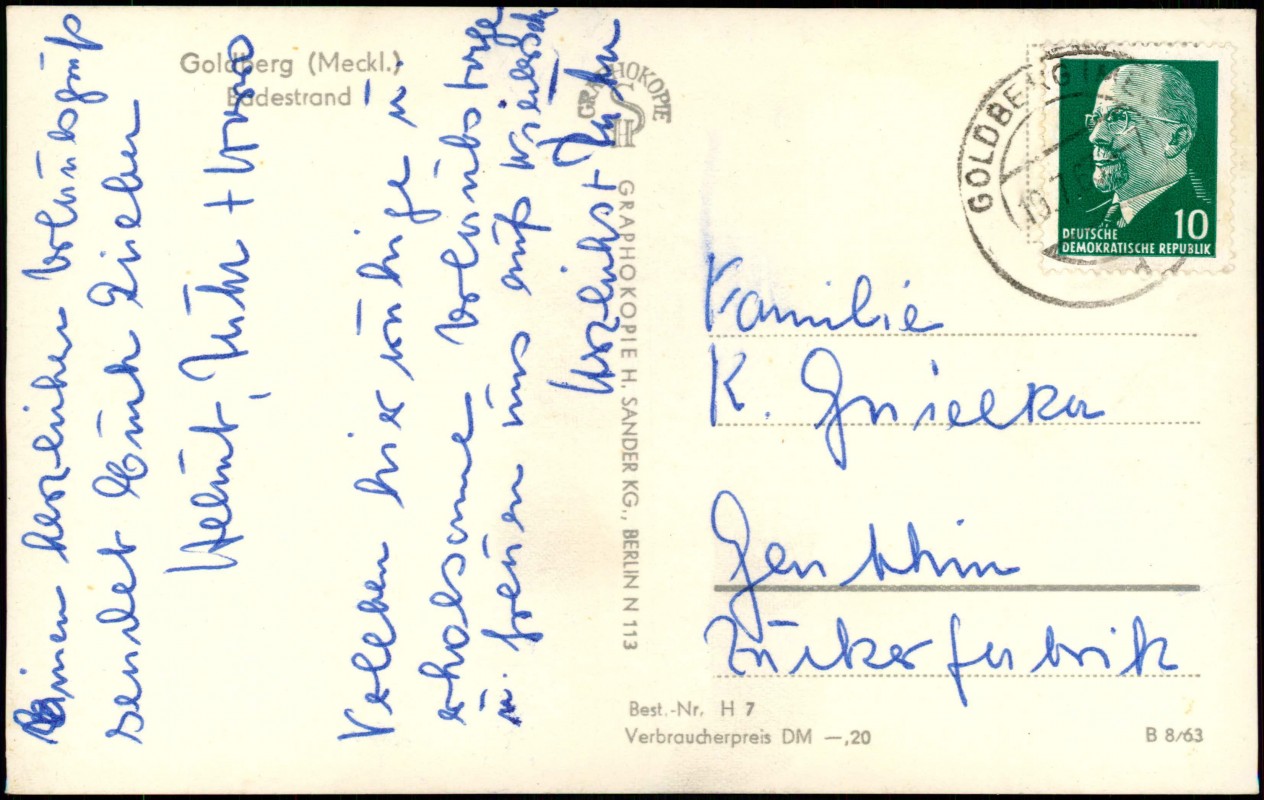 Goldberg (Meckl.)
Badestrand
Einen herzlichen Urlaubsgruß
sendet Euch Lieben
Helmut, Jutta + Horst
Verleben hier ruhige u.
erholsame Urlaubstage
u. freuen uns aufs Wiedersehen
GRAPHOKOPIE
H
GRAPHOKOPIE H. SANDER KG., BERLIN N 113
GOLDBERG (ME
19.7.6
10
DEUTSCHE
DEMOKRATISCHE REPUBLIK
Familie
K. Gnielka
Genthin
Zuckerfabrik
Best.-Nr. H 7
Verbraucherpreis DM —,20
B 8/63